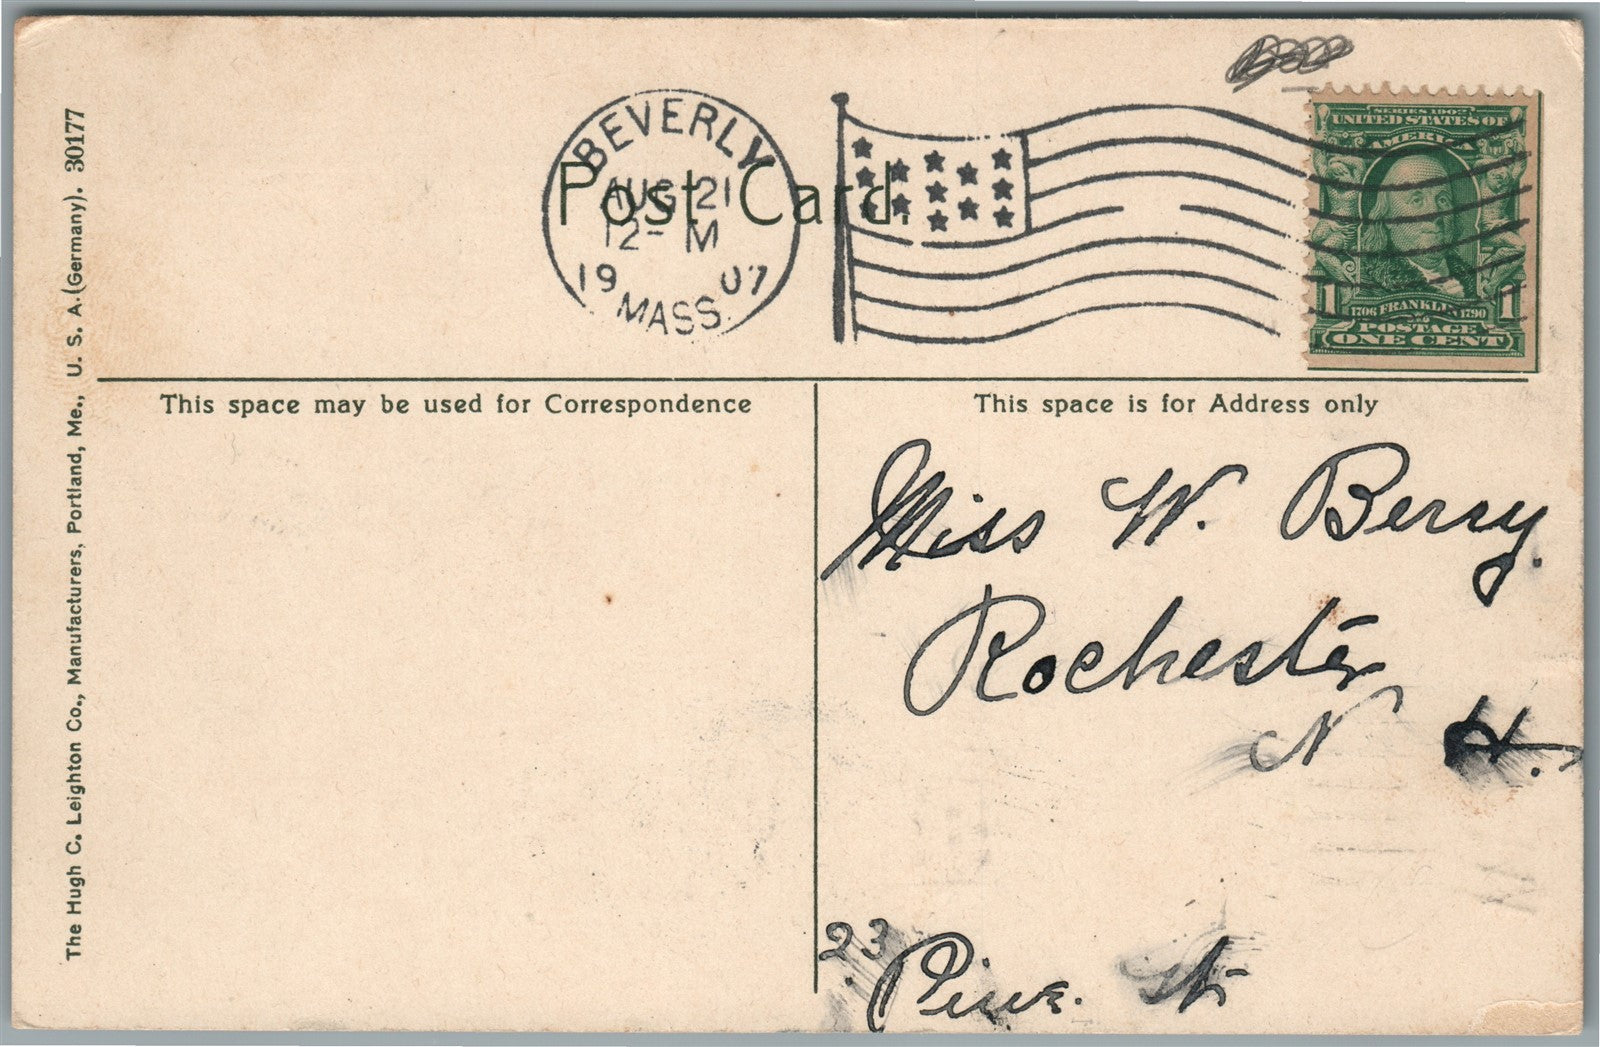 BEVERLY
AUG 21
12- M
19 07
MASS.
Post Card.
SERIES 1902
UNITED STATES OF
AMERICA
1 1706 FRANKLIN 1790 1
POSTAGE
ONE CENT
The Hugh C. Leighton Co., Manufacturers, Portland, Me., U. S. A.(Germany). 30177
This space may be used for Correspondence
This space is for Address only
Miss W. Berry.
Rochester
N H.
23 Pine. St